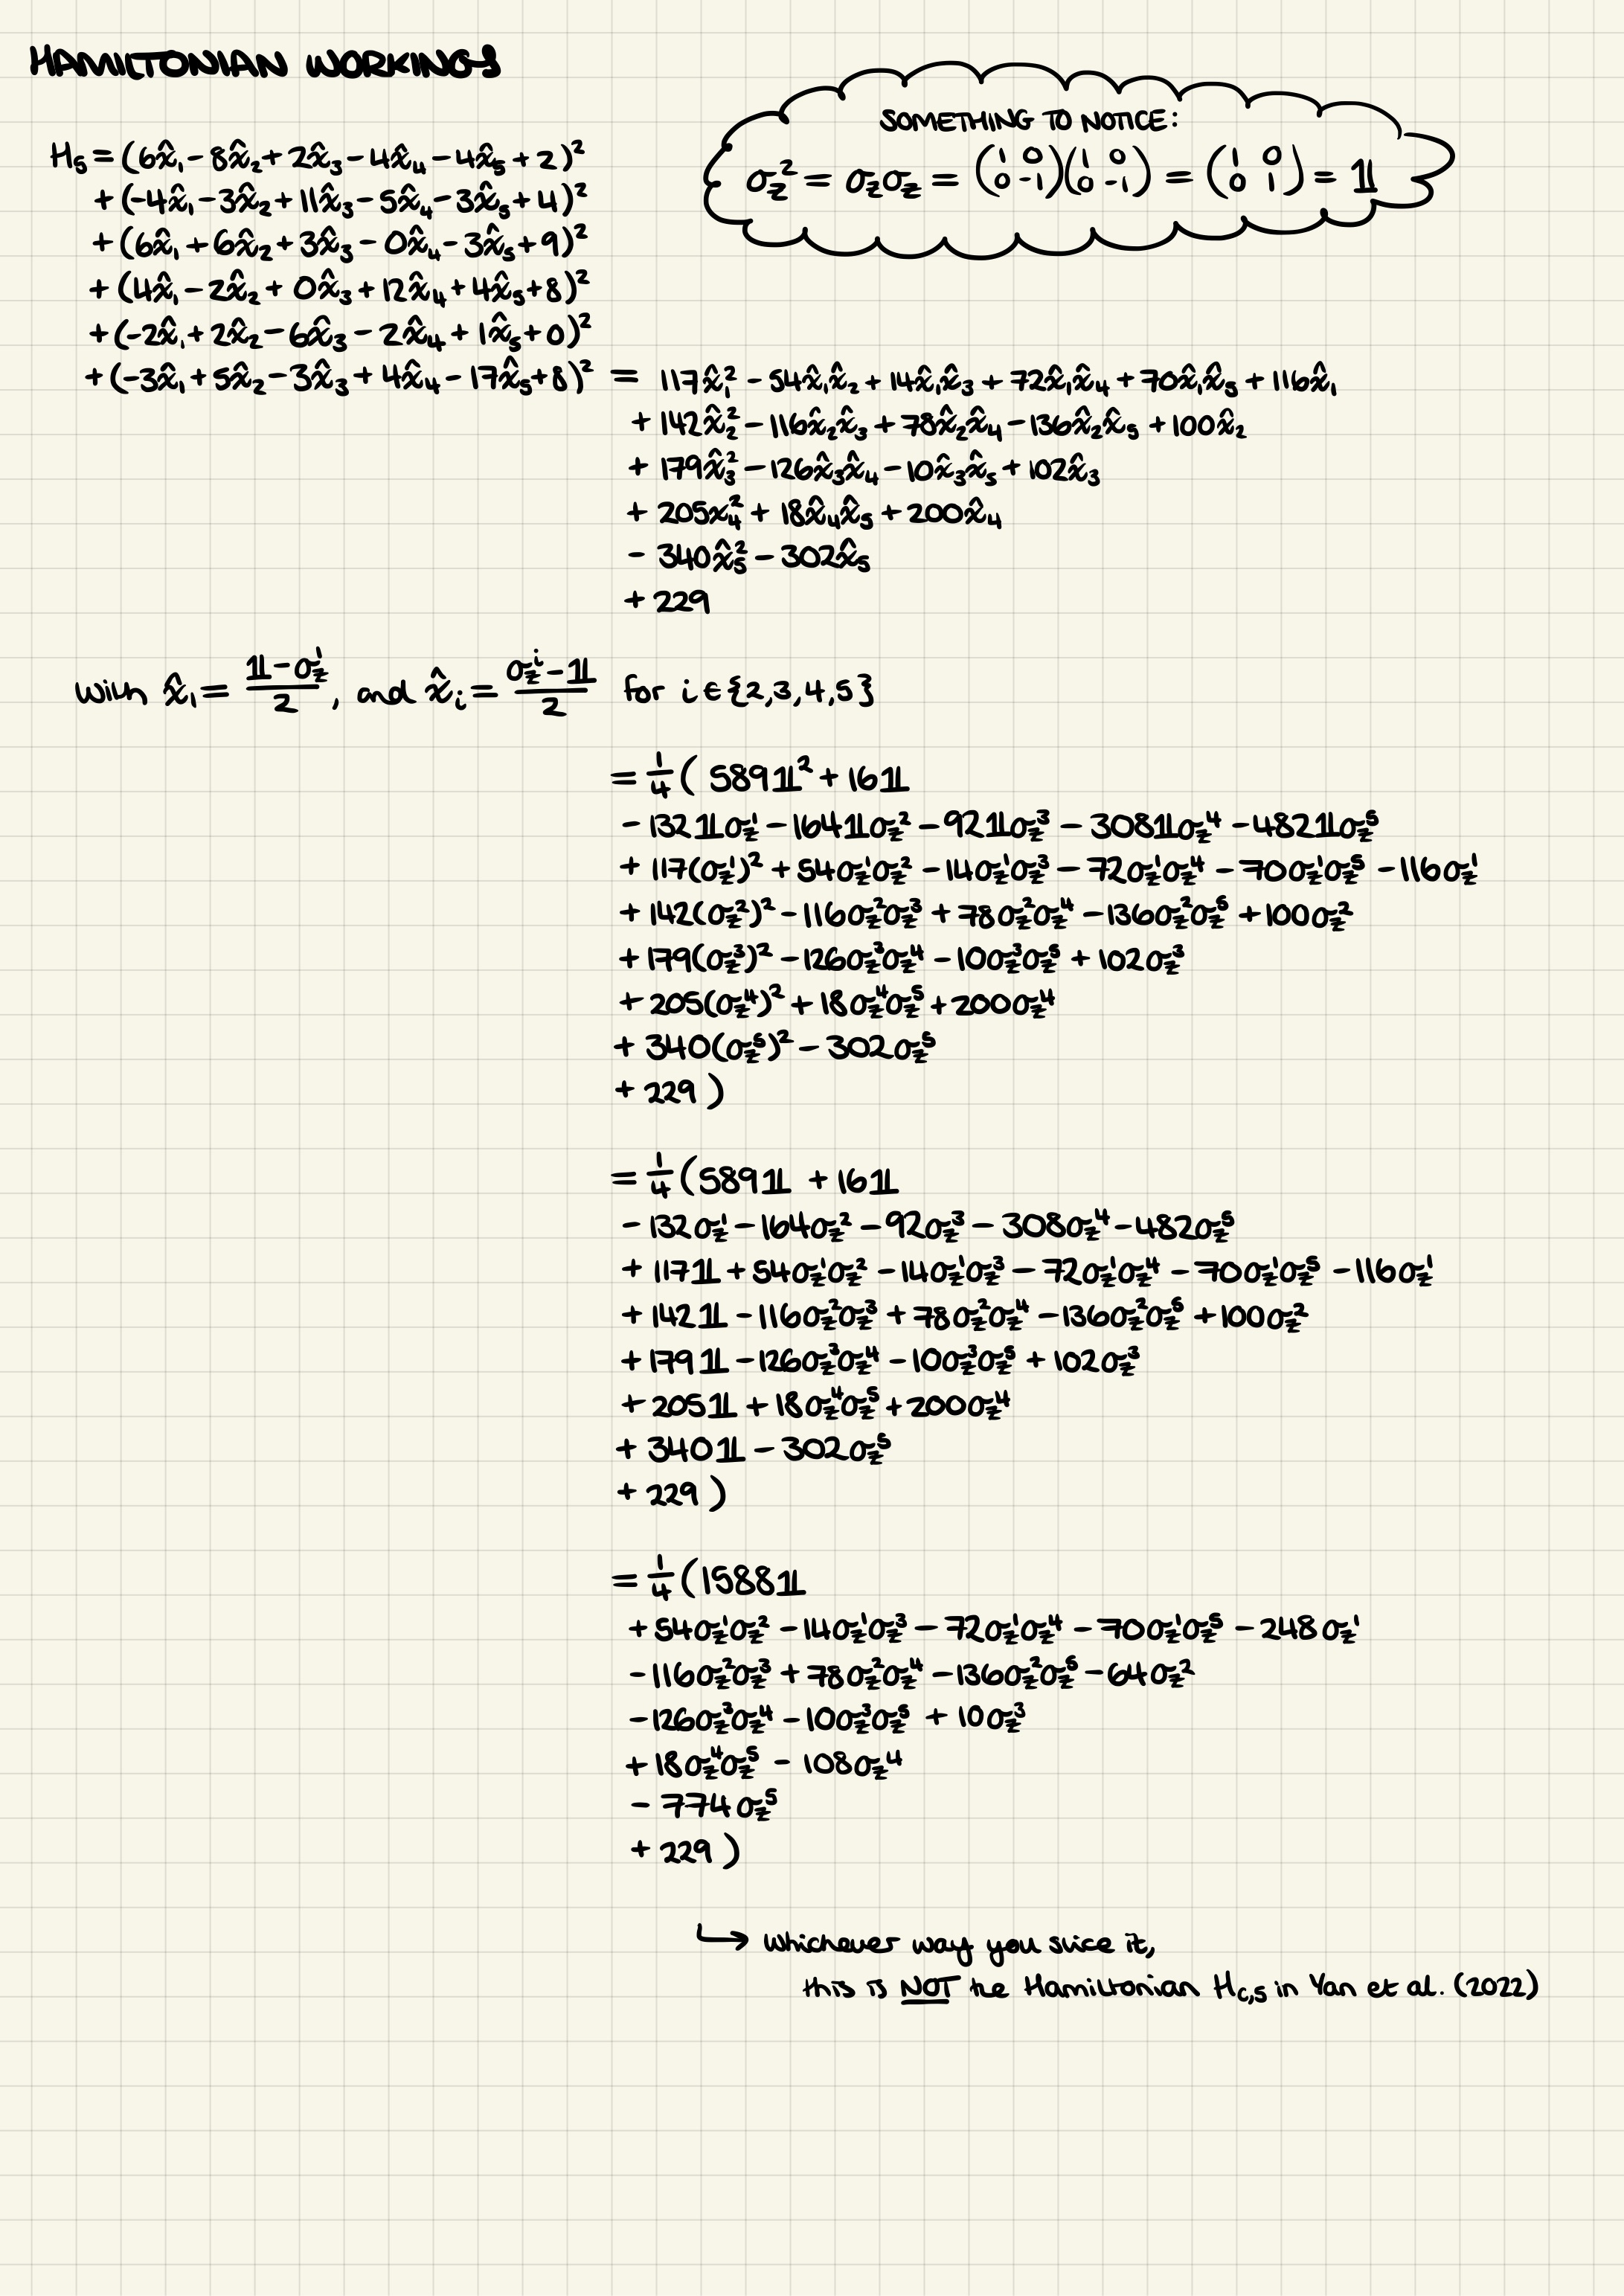 HAMILTONIAN WORKINGS
SOMETHING TO NOTICE:
σ_z² = σ_zσ_z = (1 0 0 -1)(1 0 0 -1) = (1 0 0 1) = 𝟙
H₅ = (6x̂₁ - 8x̂₂ + 2x̂₃ - 4x̂₄ - 4x̂₅ + 2)²
+ (-4x̂₁ - 3x̂₂ + 11x̂₃ - 5x̂₄ - 3x̂₅ + 4)²
+ (6x̂₁ + 6x̂₂ + 3x̂₃ - 0x̂₄ - 3x̂₅ + 9)²
+ (4x̂₁ - 2x̂₂ + 0x̂₃ + 12x̂₄ + 4x̂₅ + 8)²
+ (-2x̂₁ + 2x̂₂ - 6x̂₃ - 2x̂₄ + 1x̂₅ + 0)²
+ (-3x̂₁ + 5x̂₂ - 3x̂₃ + 4x̂₄ - 17x̂₅ + 8)² = 117x̂₁² - 54x̂₁x̂₂ + 14x̂₁x̂₃ + 72x̂₁x̂₄ + 70x̂₁x̂₅ + 116x̂₁
+ 142x̂₂² - 116x̂₂x̂₃ + 78x̂₂x̂₄ - 136x̂₂x̂₅ + 100x̂₂
+ 179x̂₃² - 126x̂₃x̂₄ - 10x̂₃x̂₅ + 102x̂₃
+ 205x₄² + 18x̂₄x̂₅ + 200x̂₄
- 340x̂₅² - 302x̂₅
+ 229
with x̂₁ = (𝟙 - σ_z¹)/2, and x̂ᵢ = (σ_zⁱ - 𝟙)/2 for i ∈ {2,3,4,5}
= 1/4 ( 589𝟙² + 16𝟙
- 132𝟙σ_z¹ - 164𝟙σ_z² - 92𝟙σ_z³ - 308𝟙σ_z⁴ - 482𝟙σ_z⁵
+ 117(σ_z¹)² + 54σ_z¹σ_z² - 14σ_z¹σ_z³ - 72σ_z¹σ_z⁴ - 70σ_z¹σ_z⁵ - 116σ_z¹
+ 142(σ_z²)² - 116σ_z²σ_z³ + 78σ_z²σ_z⁴ - 136σ_z²σ_z⁵ + 100σ_z²
+ 179(σ_z³)² - 126σ_z³σ_z⁴ - 10σ_z³σ_z⁵ + 102σ_z³
+ 205(σ_z⁴)² + 18σ_z⁴σ_z⁵ + 200σ_z⁴
+ 340(σ_z⁵)² - 302σ_z⁵
+ 229 )
= 1/4 (589𝟙 + 16𝟙
- 132σ_z¹ - 164σ_z² - 92σ_z³ - 308σ_z⁴ - 482σ_z⁵
+ 117𝟙 + 54σ_z¹σ_z² - 14σ_z¹σ_z³ - 72σ_z¹σ_z⁴ - 70σ_z¹σ_z⁵ - 116σ_z¹
+ 142𝟙 - 116σ_z²σ_z³ + 78σ_z²σ_z⁴ - 136σ_z²σ_z⁵ + 100σ_z²
+ 179𝟙 - 126σ_z³σ_z⁴ - 10σ_z³σ_z⁵ + 102σ_z³
+ 205𝟙 + 18σ_z⁴σ_z⁵ + 200σ_z⁴
+ 340𝟙 - 302σ_z⁵
+ 229 )
= 1/4 (1588𝟙
+ 54σ_z¹σ_z² - 14σ_z¹σ_z³ - 72σ_z¹σ_z⁴ - 70σ_z¹σ_z⁵ - 248σ_z¹
- 116σ_z²σ_z³ + 78σ_z²σ_z⁴ - 136σ_z²σ_z⁵ - 64σ_z²
- 126σ_z³σ_z⁴ - 10σ_z³σ_z⁵ + 10σ_z³
+ 18σ_z⁴σ_z⁵ - 108σ_z⁴
- 774σ_z⁵
+ 229 )
↳ whichever way you slice it,
this is NOT the Hamiltonian H_c,5 in Yan et al. (2022)